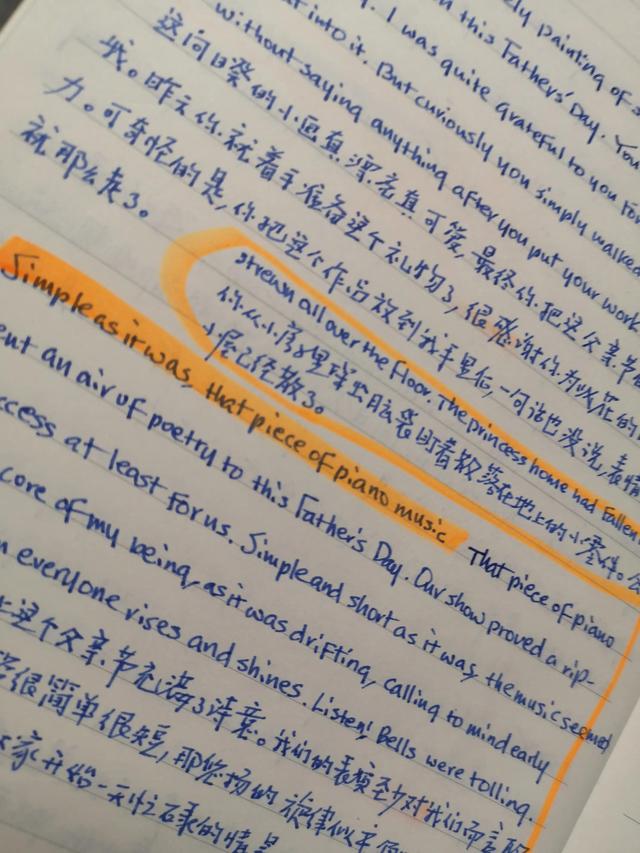 ly painting of s
this Father's Day. You
. I was quite grateful to you for
t into it. But curiously you simply walked
without saying anything after you put your work
这向日葵的小画真漂亮真可爱,最终你把这个亲节
我。昨天你就着手准备这个礼物了,很感谢你为此花的
力。可奇怪的是,你把这个作品放到我手里后,一句话也没说,表情
就那么走了。
strewn all over the floor. The princess home had fallen
你从小房子里探出脑袋盯着散落在地上的小零件。
小屋已经散了。
Simple as it was, that piece of piano music
That piece of piano
ent an air of poetry to this Father's Day. Our show proved a rip-
ccess at least for us. Simple and short as it was, the music seemed
core of my being, as it was drifting, calling to mind early
n everyone rises and shines. Listen! Bells were tolling.
这个父亲节充满了诗意。我们的表演至少对我们而言
很简单很短,那悠扬的旋律似乎
家开始一天忙碌的情景